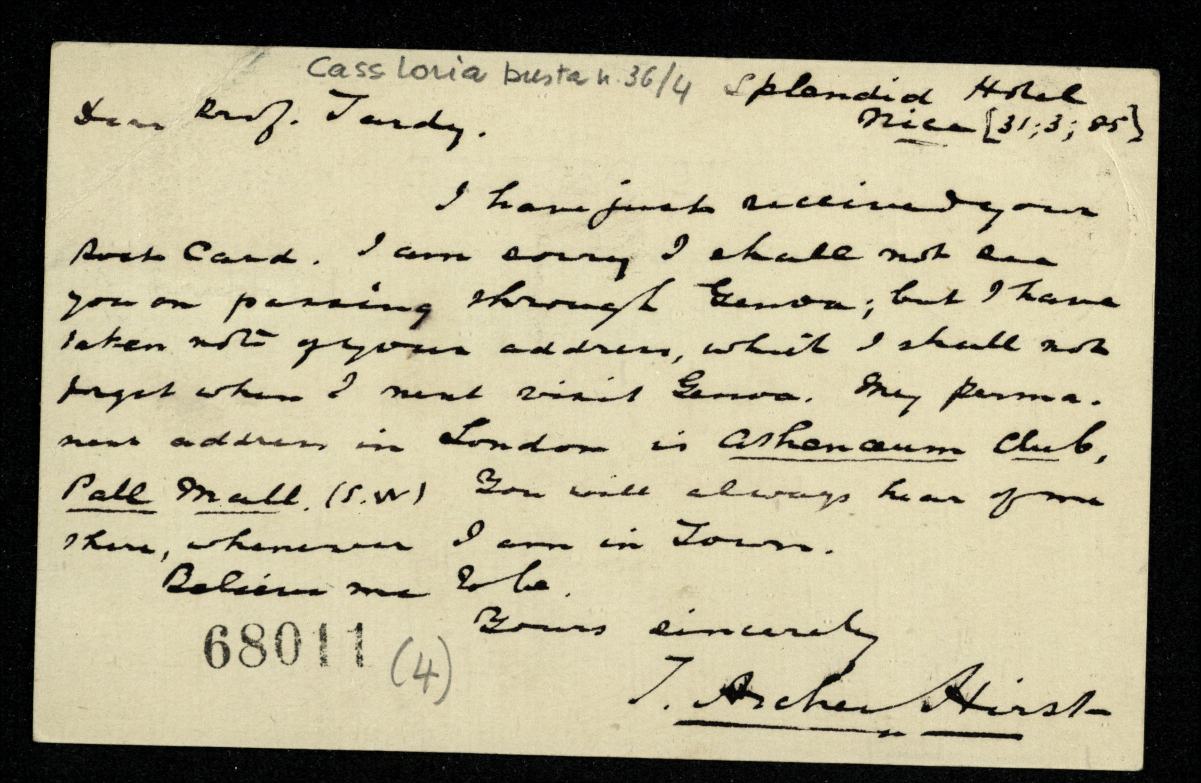 Cass Loria busta n. 36/4
Splendid Hotel
Nice [31; 3; 85]
Dear Prof. Tardy.
I have just received your
Post Card. I am sorry I shall not see
you on passing through Genoa; but I have
taken note of your address, which I shall not
forget when I next visit Genoa. My perma-
nent address in London is Athenæum Club,
Pall Mall. (S.W) You will always hear of me
there, whenever I am in Town.
Believe me to be.
Yours sincerely
T. Archer Hirst
68011
(4)